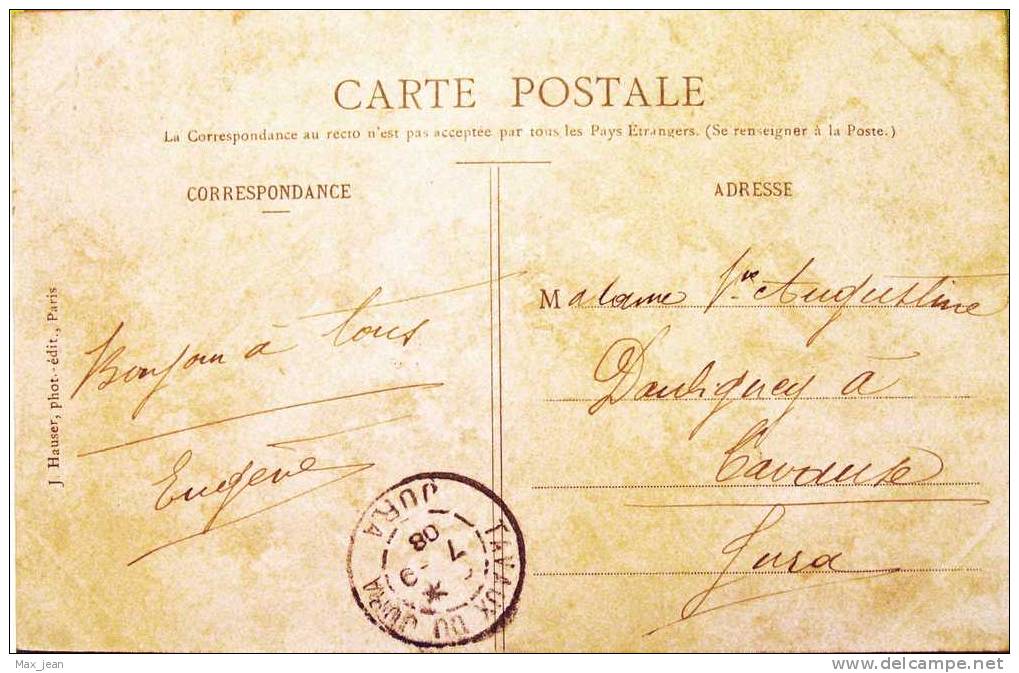 CARTE POSTALE
La Correspondance au recto n'est pas acceptée par tous les Pays Étrangers. (Se renseigner à la Poste.)
CORRESPONDANCE
Bonjour à tous
Eugène
J. Hauser, phot.-édit., Paris
ADRESSE
Madame Vve Augustine
à
Jura
JURA
7 - 9
08
DU JURA
Max_jean
delcampe.net